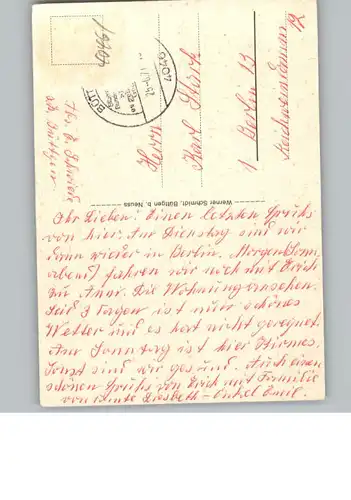 4046
BÜTT
Herrn
Karl
1 Berlin 13
Abs. E.
Büttgen
Werner Schmidt, Büttgen b. Neuss
Ihr Lieben! Einen letzten Gruß
von hier. Am Dienstag sind wir
dann wieder in Berlin. Morgen (Sonn
abend) fahren wir noch mit Erich
zu Anni. Die Wohnung ansehen.
Seid 3 Tagen ist nur schönes
Wetter und es hat nicht geregnet.
Am Sonntag ist hier Kirmes.
Sonst sind wir gesund. Auch einen
schönen Gruß von Erich mit Familie
von Tante Liesbeth - Onkel Emil.